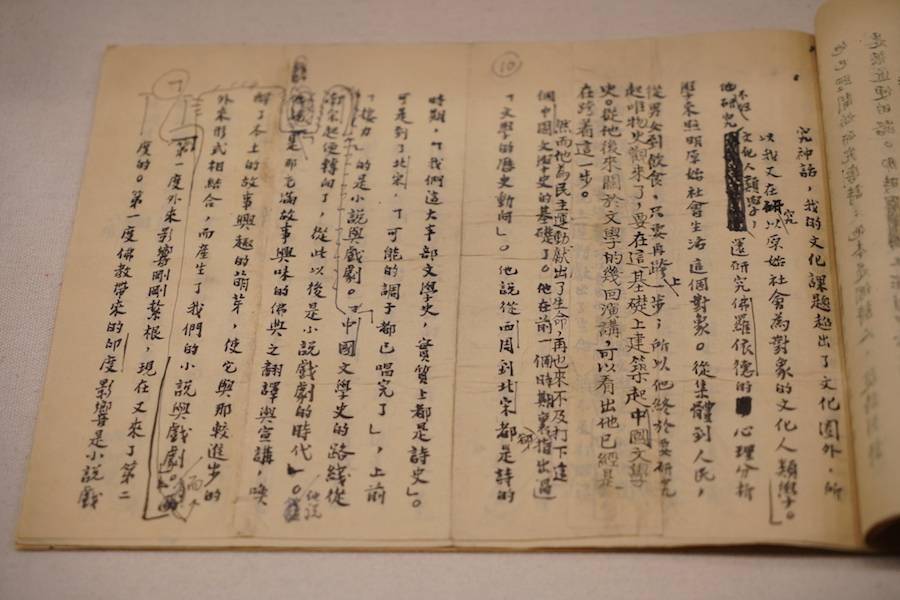 究神話，我的文化課題超出了文化圈外，所
以我又在研究以原始社會為對象的文化人類學。
他不但研究文化人類學，還研究佛羅依德的心理分析
學來照明原始社會生活這個對象。從集體到人民，
從男女到飲食，只要再跨上一步；所以他終於要研究
起唯物史觀來了，要在這基礎上建築起中國文學
史。從他後來關於文學的幾回演講，可以看出他已經是
在跨着這一步。
然而他為民主運動獻出了生命，再也來不及打下這
個中國文學史的基礎了。他在前一個時期裏卻指出過
「文學的歷史動向」。他說從西周到北宋都是詩的
10
時期，「我們這大半部文學史，實質上都是詩史」。
可是到了北宋，「可能的調子都已唱完了」，上前
「接力」的是小說與戲劇。「中國文學史的路綫從
南宋起便轉向了，從此以後是小說戲劇的時代」。他說
是那充滿故事興味的佛典之翻譯與宣講，喚
醒了本土的故事興趣的萌芽，使它與那較進步的
外來形式相結合，而產生了我們的小說與戲劇。而
第一度外來影響剛剛紮根，現在又來了第二
度的。第一度佛教帶來的印度影響是小說戲